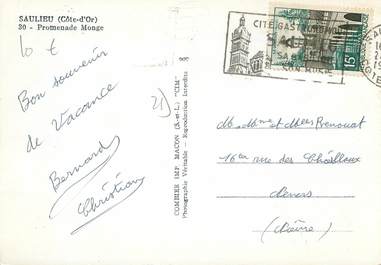 SAULIEU (Côte-d'Or)
30 - Promenade Monge
10 €
Bon souvenir
de Vacance
Bernard
Christian
21)
COMBIER IMP. MACON (S.-et-L.) "CIM"
Photographie Véritable - Reproduction Interdite
CITÉ GASTRONOMIQUE
SAULIEU
SA BASILIQUE
SON MUSÉE
15F
M Mme et Melles
16 rue des
Nevers
(Nièvre)